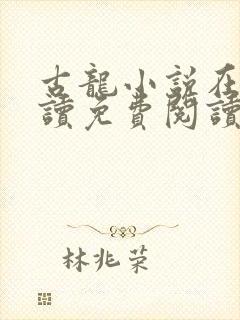 古龍小說在
讀免費閱讀
林兆荣